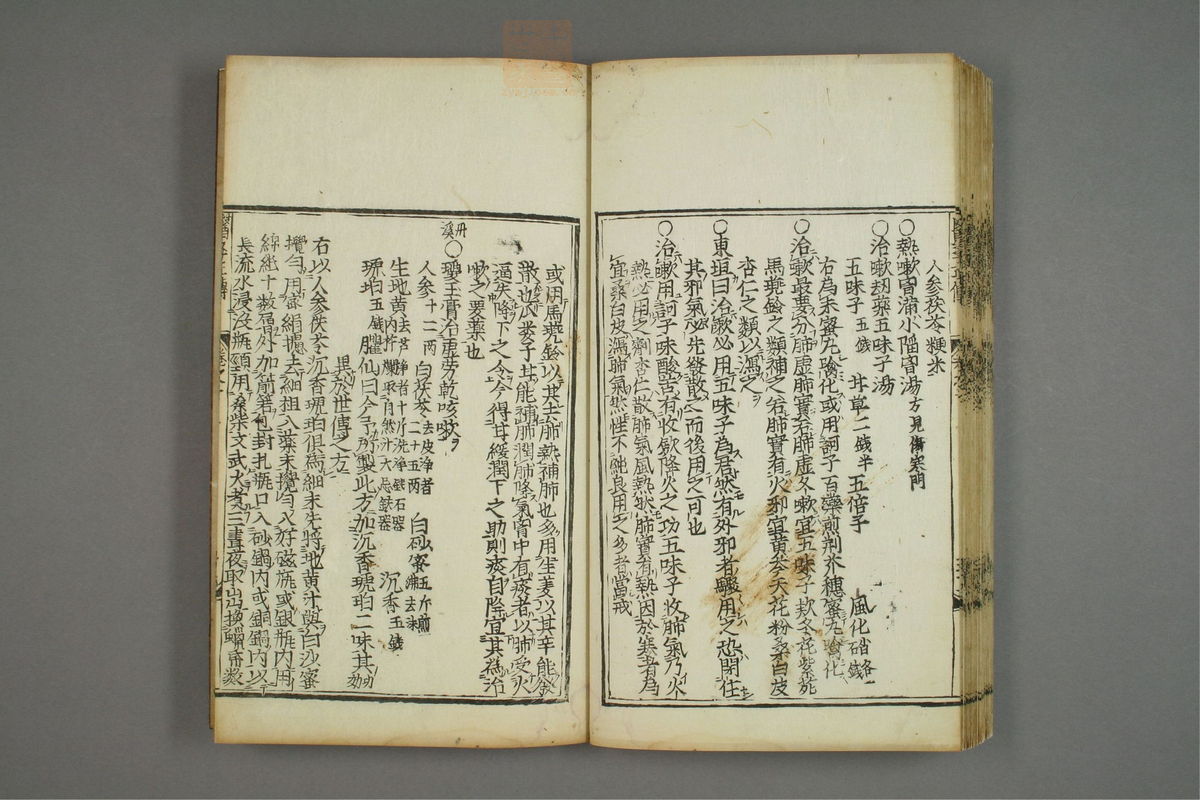 人參茯苓粳米
○熱嗽胃 小陷胷湯方見傷寒門
○治嗽劫藥五味子湯
五味子五錢 甘草二錢半 五倍子 風化硝各一錢
右為末蜜丸噙化或用訶子百藥煎荆芥穗蜜丸噙化
○治嗽最要分肺虛肺實若肺虛久嗽宜五味子欵冬花紫菀
馬兠鈴之類補之若肺實有火邪宜黄芩天花粉桑白皮
杏仁之類以瀉之
○東垣曰治嗽必用五味子為君然有外邪者驟用之恐閉住
其邪氣必先發散之而後用之可也
○治嗽用訶子味酸苦有收歛降火之功五味子收肺氣乃火
熱必用之劑杏仁散肺氣風熱然肺實有熱因於寒者為
宜桑白皮瀉肺氣然性不純良用之多者當戒
或用馬兠鈴以其去肺熱補肺也多用生姜以其辛能發
散也瓜蔞子甘能補肺潤肺降氣胷中有痰者以肺受火
逼失降下之令今得甘緩潤下之助則痰自降宜其為治
嗽之要藥也
丹溪○瓊玉膏治虛勞乾咳嗽
人參十二兩 白茯苓二十五兩去皮淨者 白砂蜜五斤煎沸去沫
生地黄 沉香五錢
琥珀五錢臞仙曰今予所製此方加沉香琥珀二味其功効
異於世傳之方
右以人參茯苓沉香琥珀俱為細末先將地黄汁與白沙蜜
攪勻用 絹濾去細 入藥末攪勻入好磁瓶或銀瓶內用
綿紙十數層外加箬 封扎瓶口入砂鍋內或銅鍋內以
長流水浸沒瓶頸用桑柴文武火煑三晝夜取出換 紙數